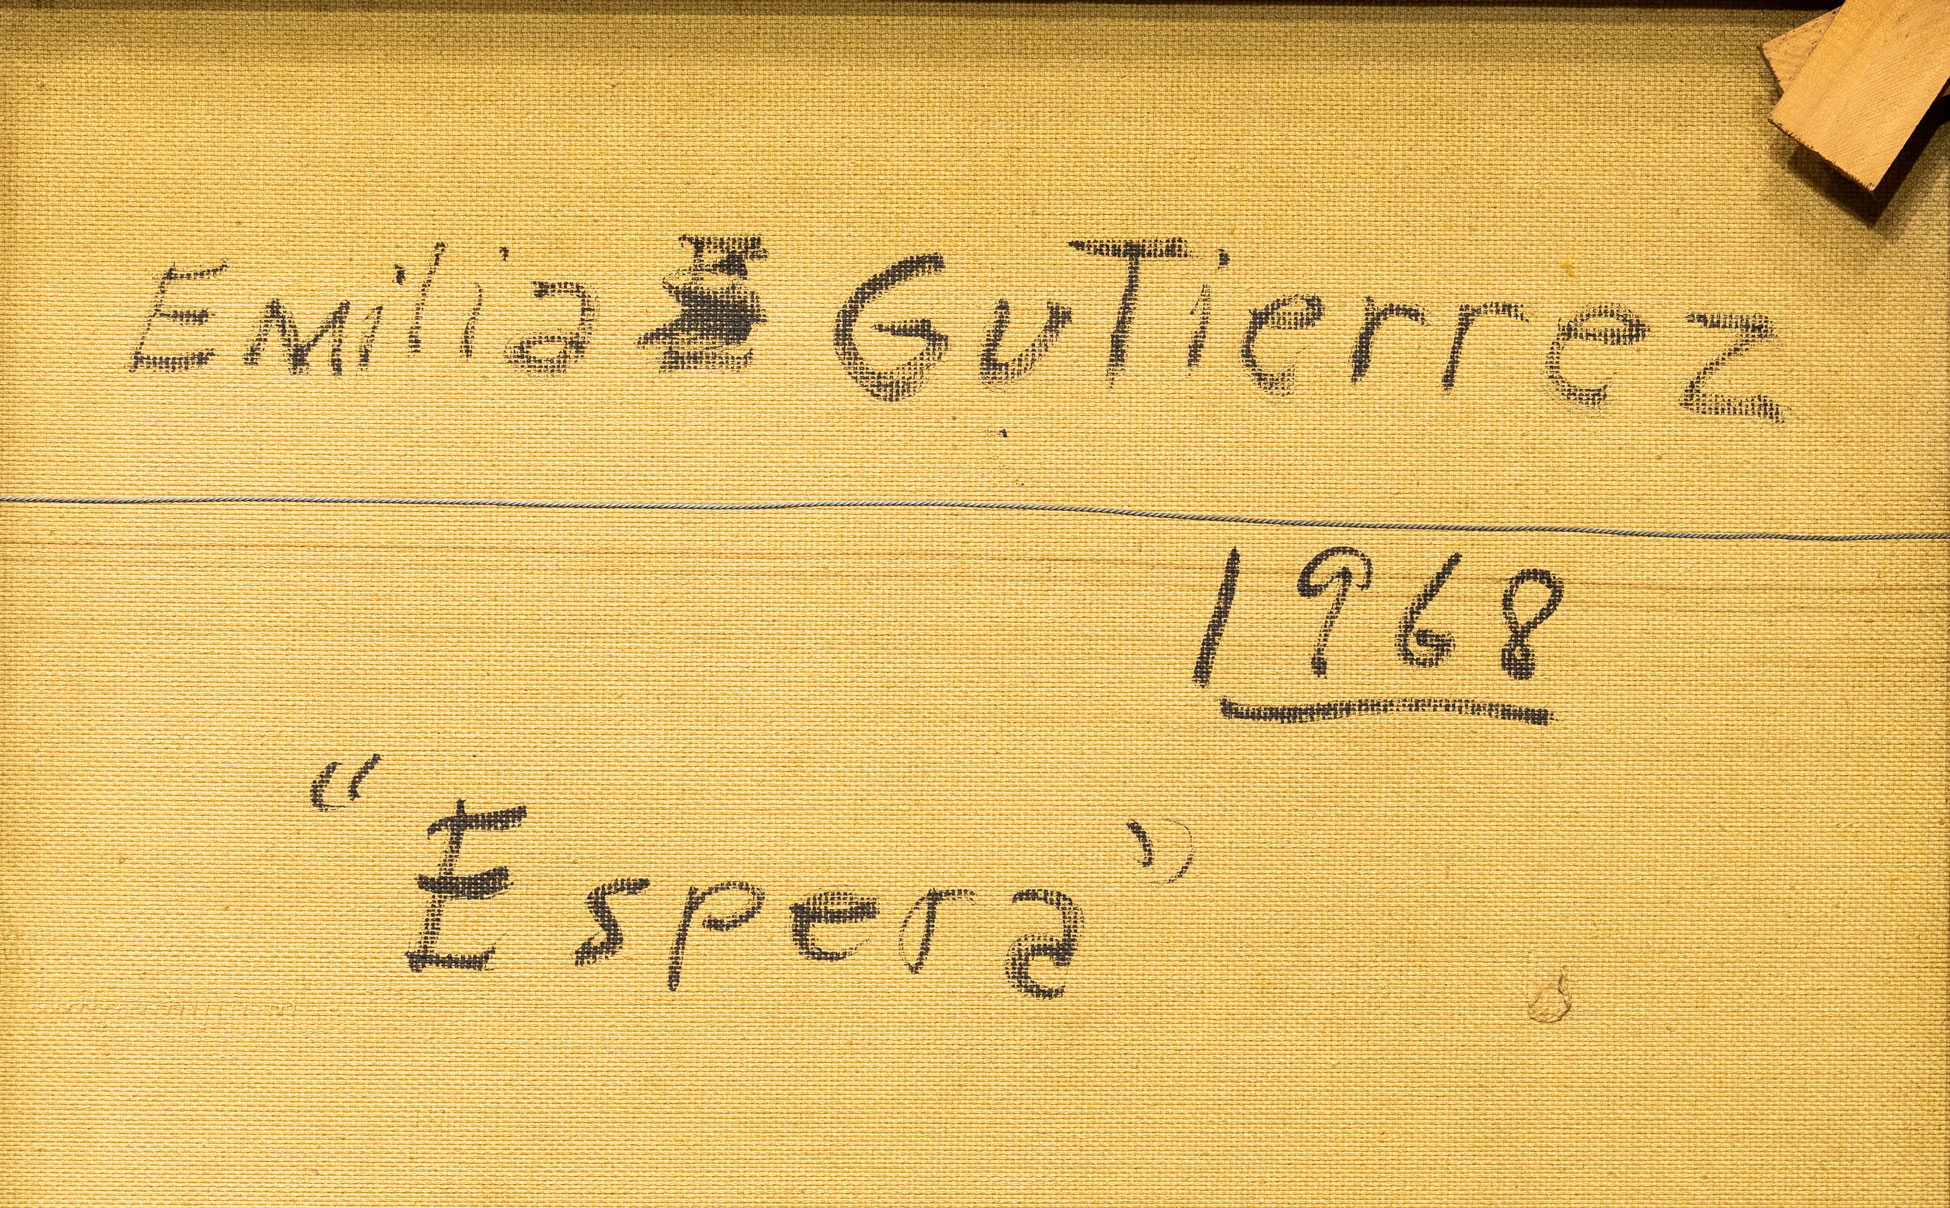 Emilia GuTierrez
1968
"Espera"